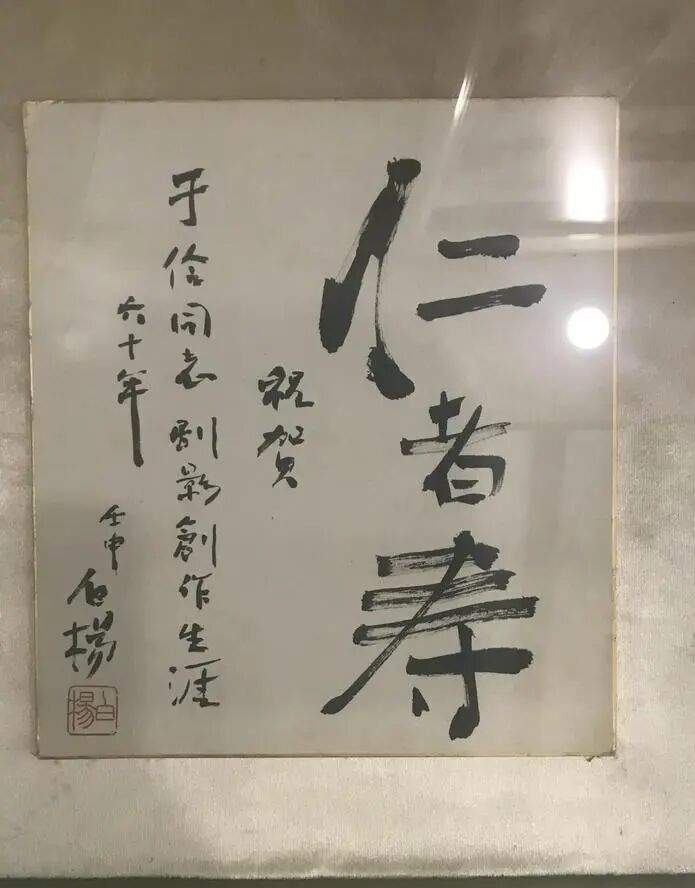 仁者寿
祝贺
于伶同志剧影創作生涯
六十年
壬申
白楊
白楊